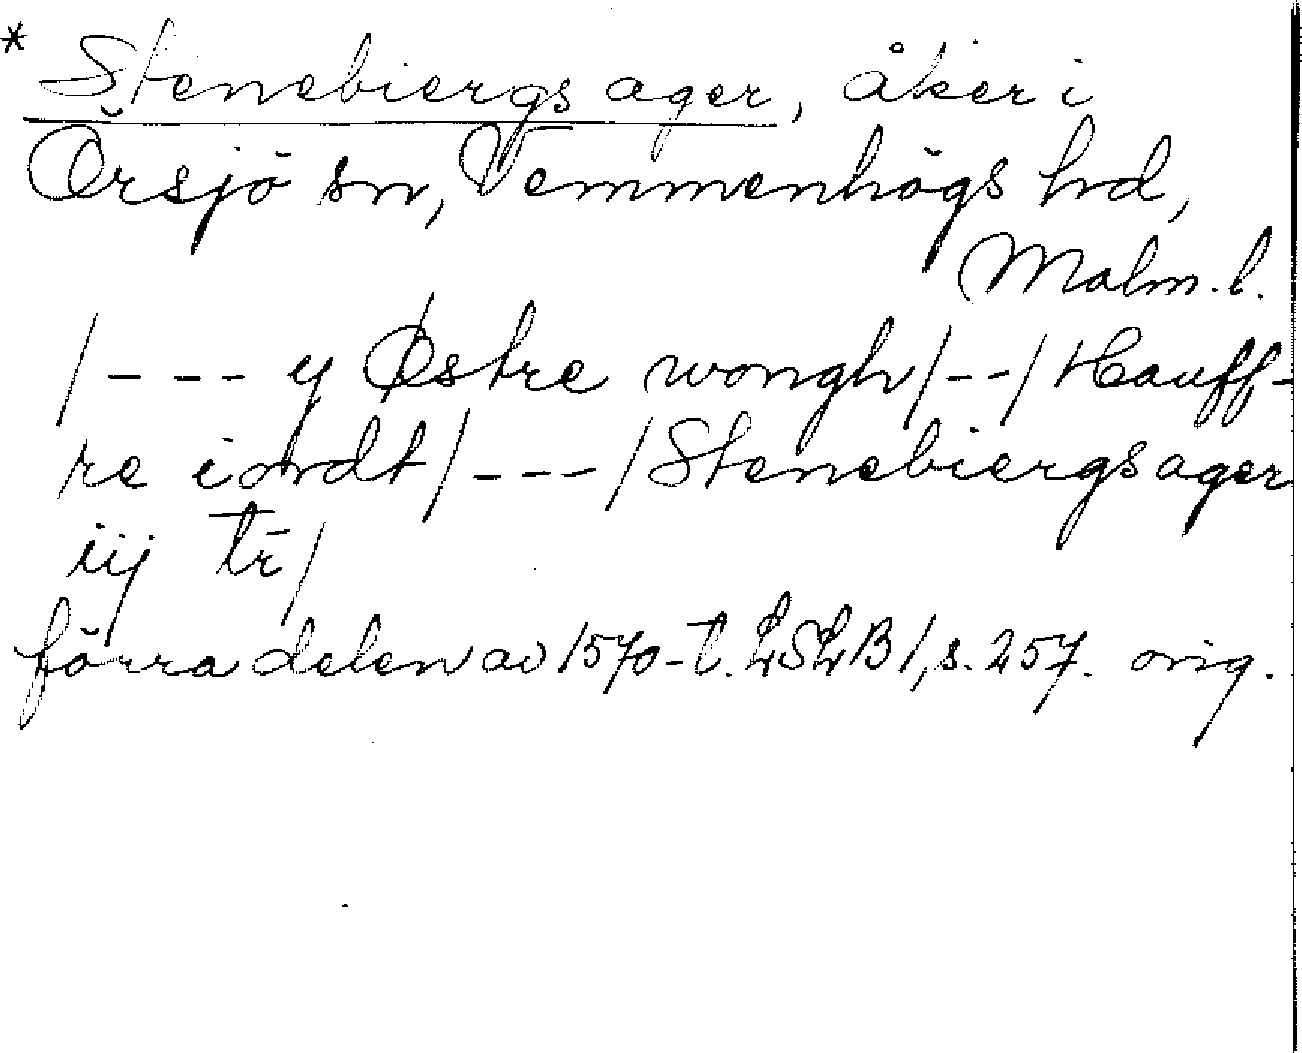 * Stenebiergs ager, åker i
Örsjö sn, Vemmenhögs hd,
Malm. l.
/--- y Østre wongh/--/Hauff-
re iordt/---/Stenebiergs ager
iij tr̄/
förra delen av 1570-t. LSLB 1, s. 257. orig.